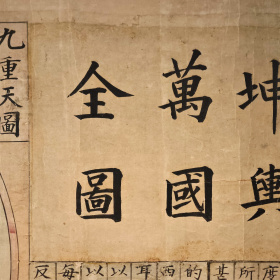 坤輿
萬國
全圖
九重天圖
度所甚的西耳以以每反